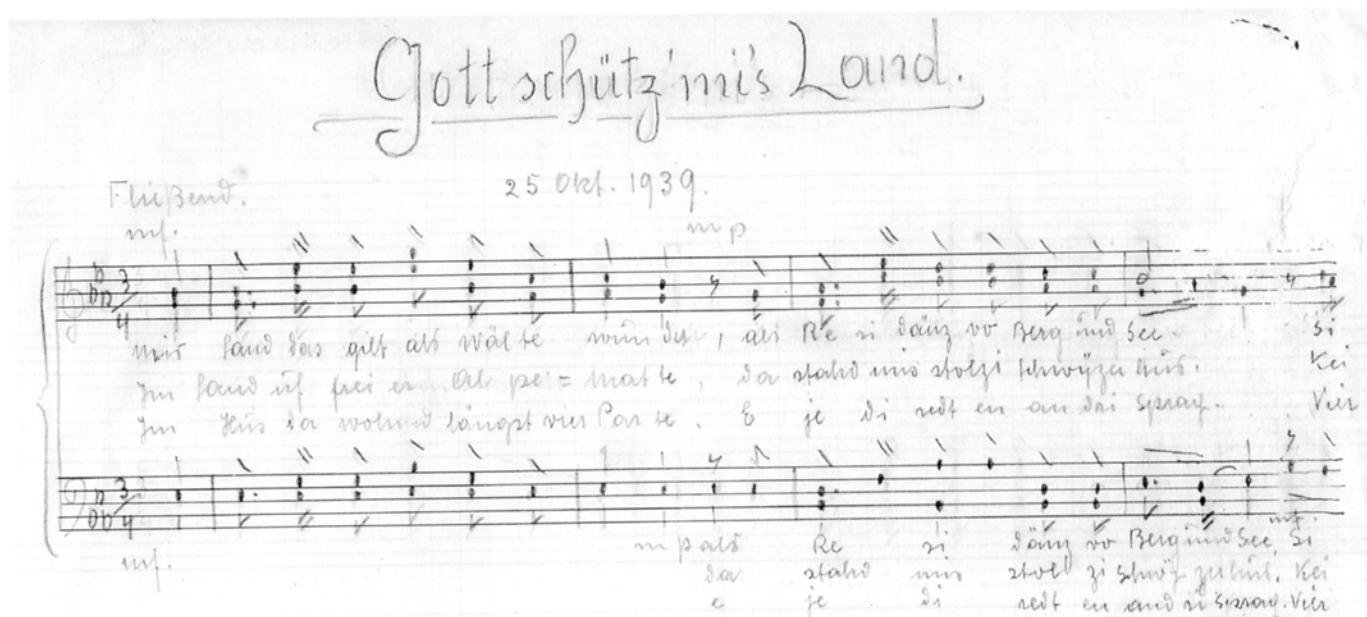 Gott schütz' mis Land.
25 Okt. 1939.
Fließend.
mf.
mp
3/4
Mis Land das gilt als Wälte wunder, als Re si dänz vo Berg und See. Si
Im Land uf frei em Al pe = matte, da stahd mis stolzi Schwyzer hus. Kei
Im Hus da wohnd längst vier Par te. E je di redt en an dri Sprach. Vier
3/4
mf.
mp als Re si dänz vo Berg und See, Si
mf
da stahd mis stol zi Schwyzerhus. Kei
e je di redt en and ri Sprach. Vier